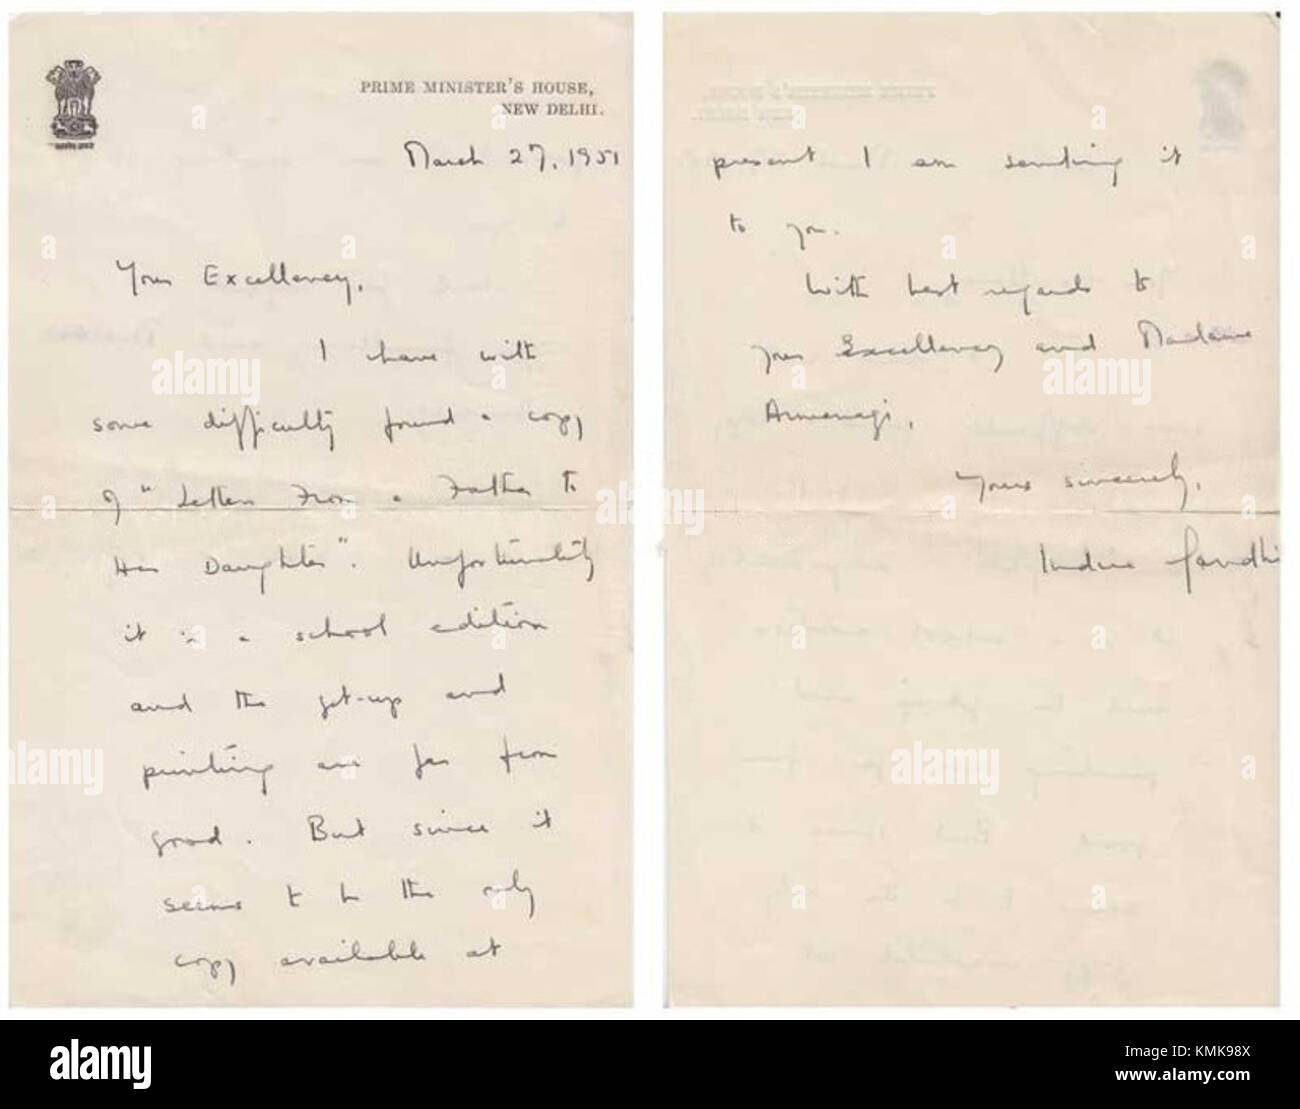 PRIME MINISTER'S HOUSE,
NEW DELHI.
March 27, 1951
Your Excellency,
I have with
some difficulty found a copy
of "Letters From a Father to
His Daughter". Unfortunately
it is a school edition
and the get-up and
printing are far from
good. But since it
seems to be the only
copy available at
present I am sending it
to you.
With best regards to
your Excellency and Madame
Armenagi,
Yours sincerely,
Indira Gandhi
alamy
alamy stock photo
KMK98X
www.alamy.com